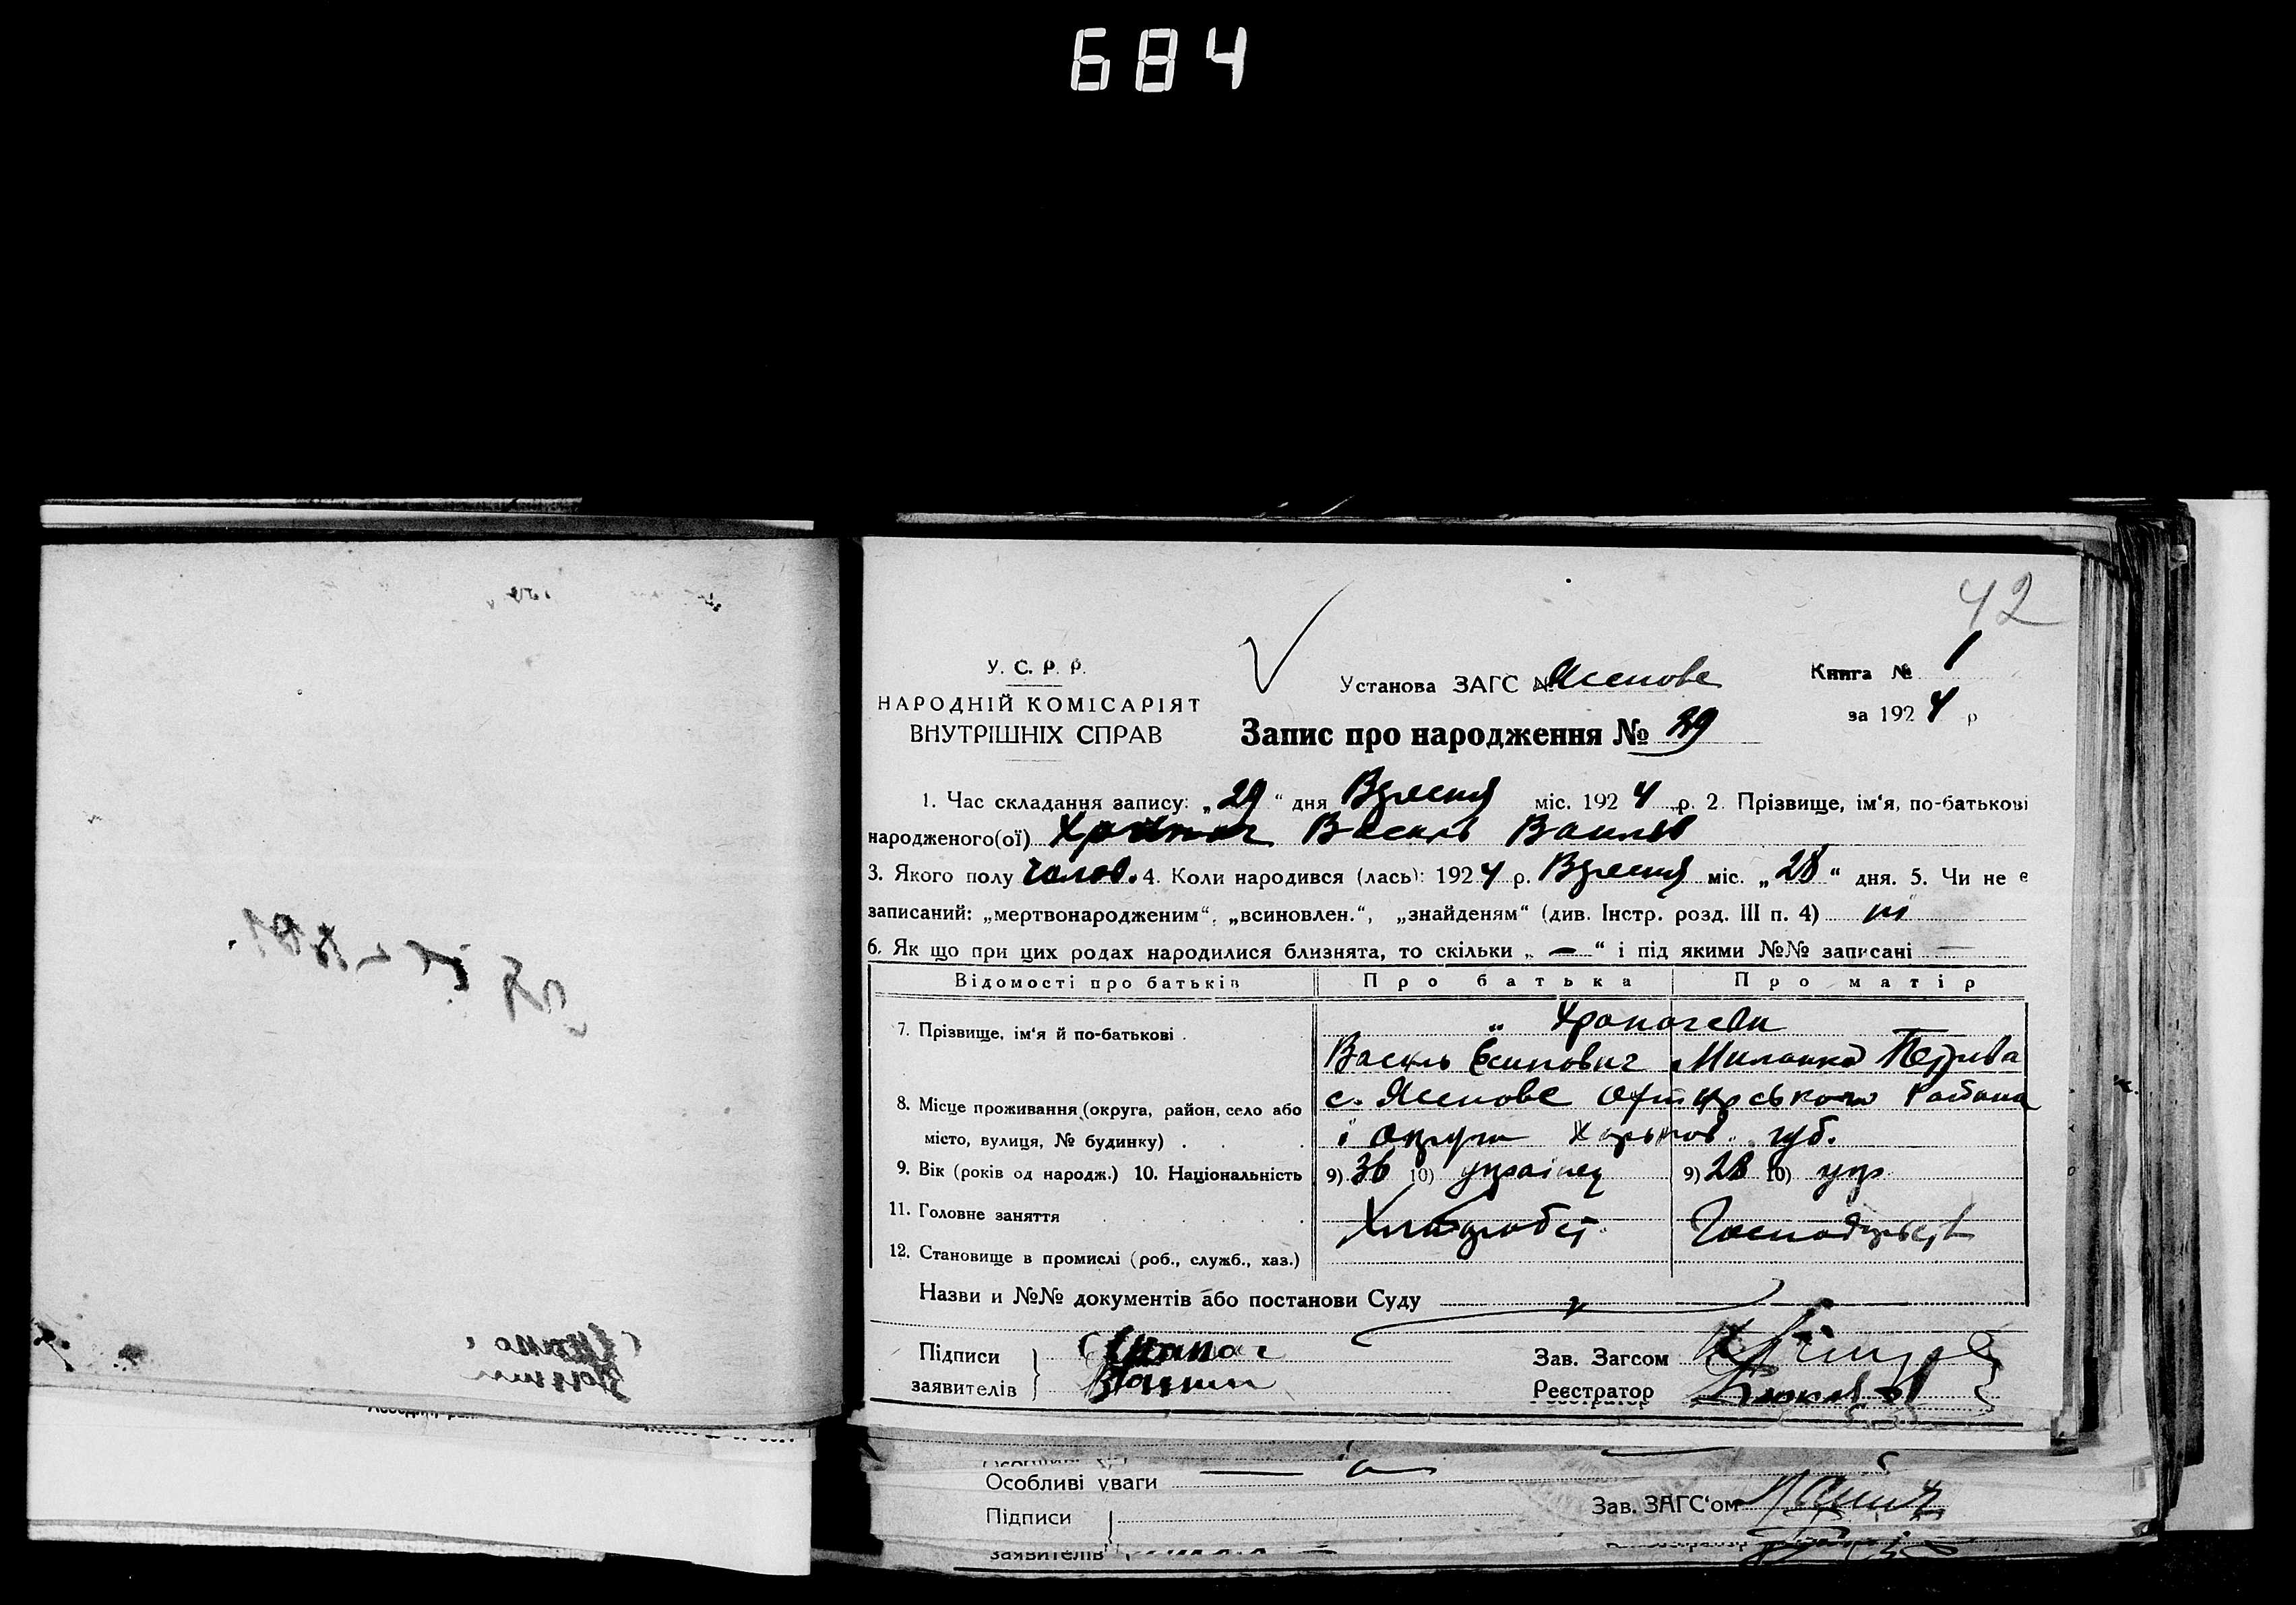 684
42
У. С. Р. Р.
НАРОДНІЙ КОМІСАРІЯТ
ВНУТРІШНІХ СПРАВ
Установа ЗАГС № Ясенове
Книга № 1
за 1924 р
Запис про народження № 39
1. Час складання запису: „29“ дня Вересня міс. 1924 р. 2. Прізвище, ім‘я, по-батькові
народженого(ої) Василь Васильів
3. Якого полу чолов. 4. Коли народився (лась): 1924 р. Вересня міс. „28“ дня. 5. Чи не є
записаний: „мертвонародженим“, „всиновлен.“, „знайденям“ (див. Інстр. розд. III п. 4) ні
6. Як що при цих родах народилися близнята, то скільки „—“ і під якими №№ записані —
Відомості про батьків Про батька Про матір
7. Прізвище, ім‘я й по-батькові . „ Хропачеви
Василь Єсипович Миланка Петрова
8. Місце проживання (округа, район, село або с. Ясенове Охтирського Района
місто, вулиця, № будинку) . і округи Харьков. губ.
9. Вік (років од народж.) 10. Національність 9) 36 10) українец 9) 28 10) укр
11. Головне заняття Хліборобст. Господарьст
12. Становище в промислі (роб., служб., хаз.)
Назви и №№ документів або постанови Суду
Підписи Зав. Загсом
заявителів Реєстратор
Особливі уваги
Зав. ЗАГС‘ом
Підписи
заявителів